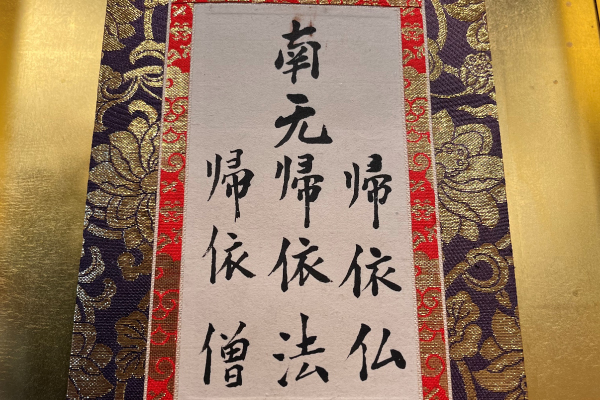 南无
帰依仏
帰依法
帰依僧